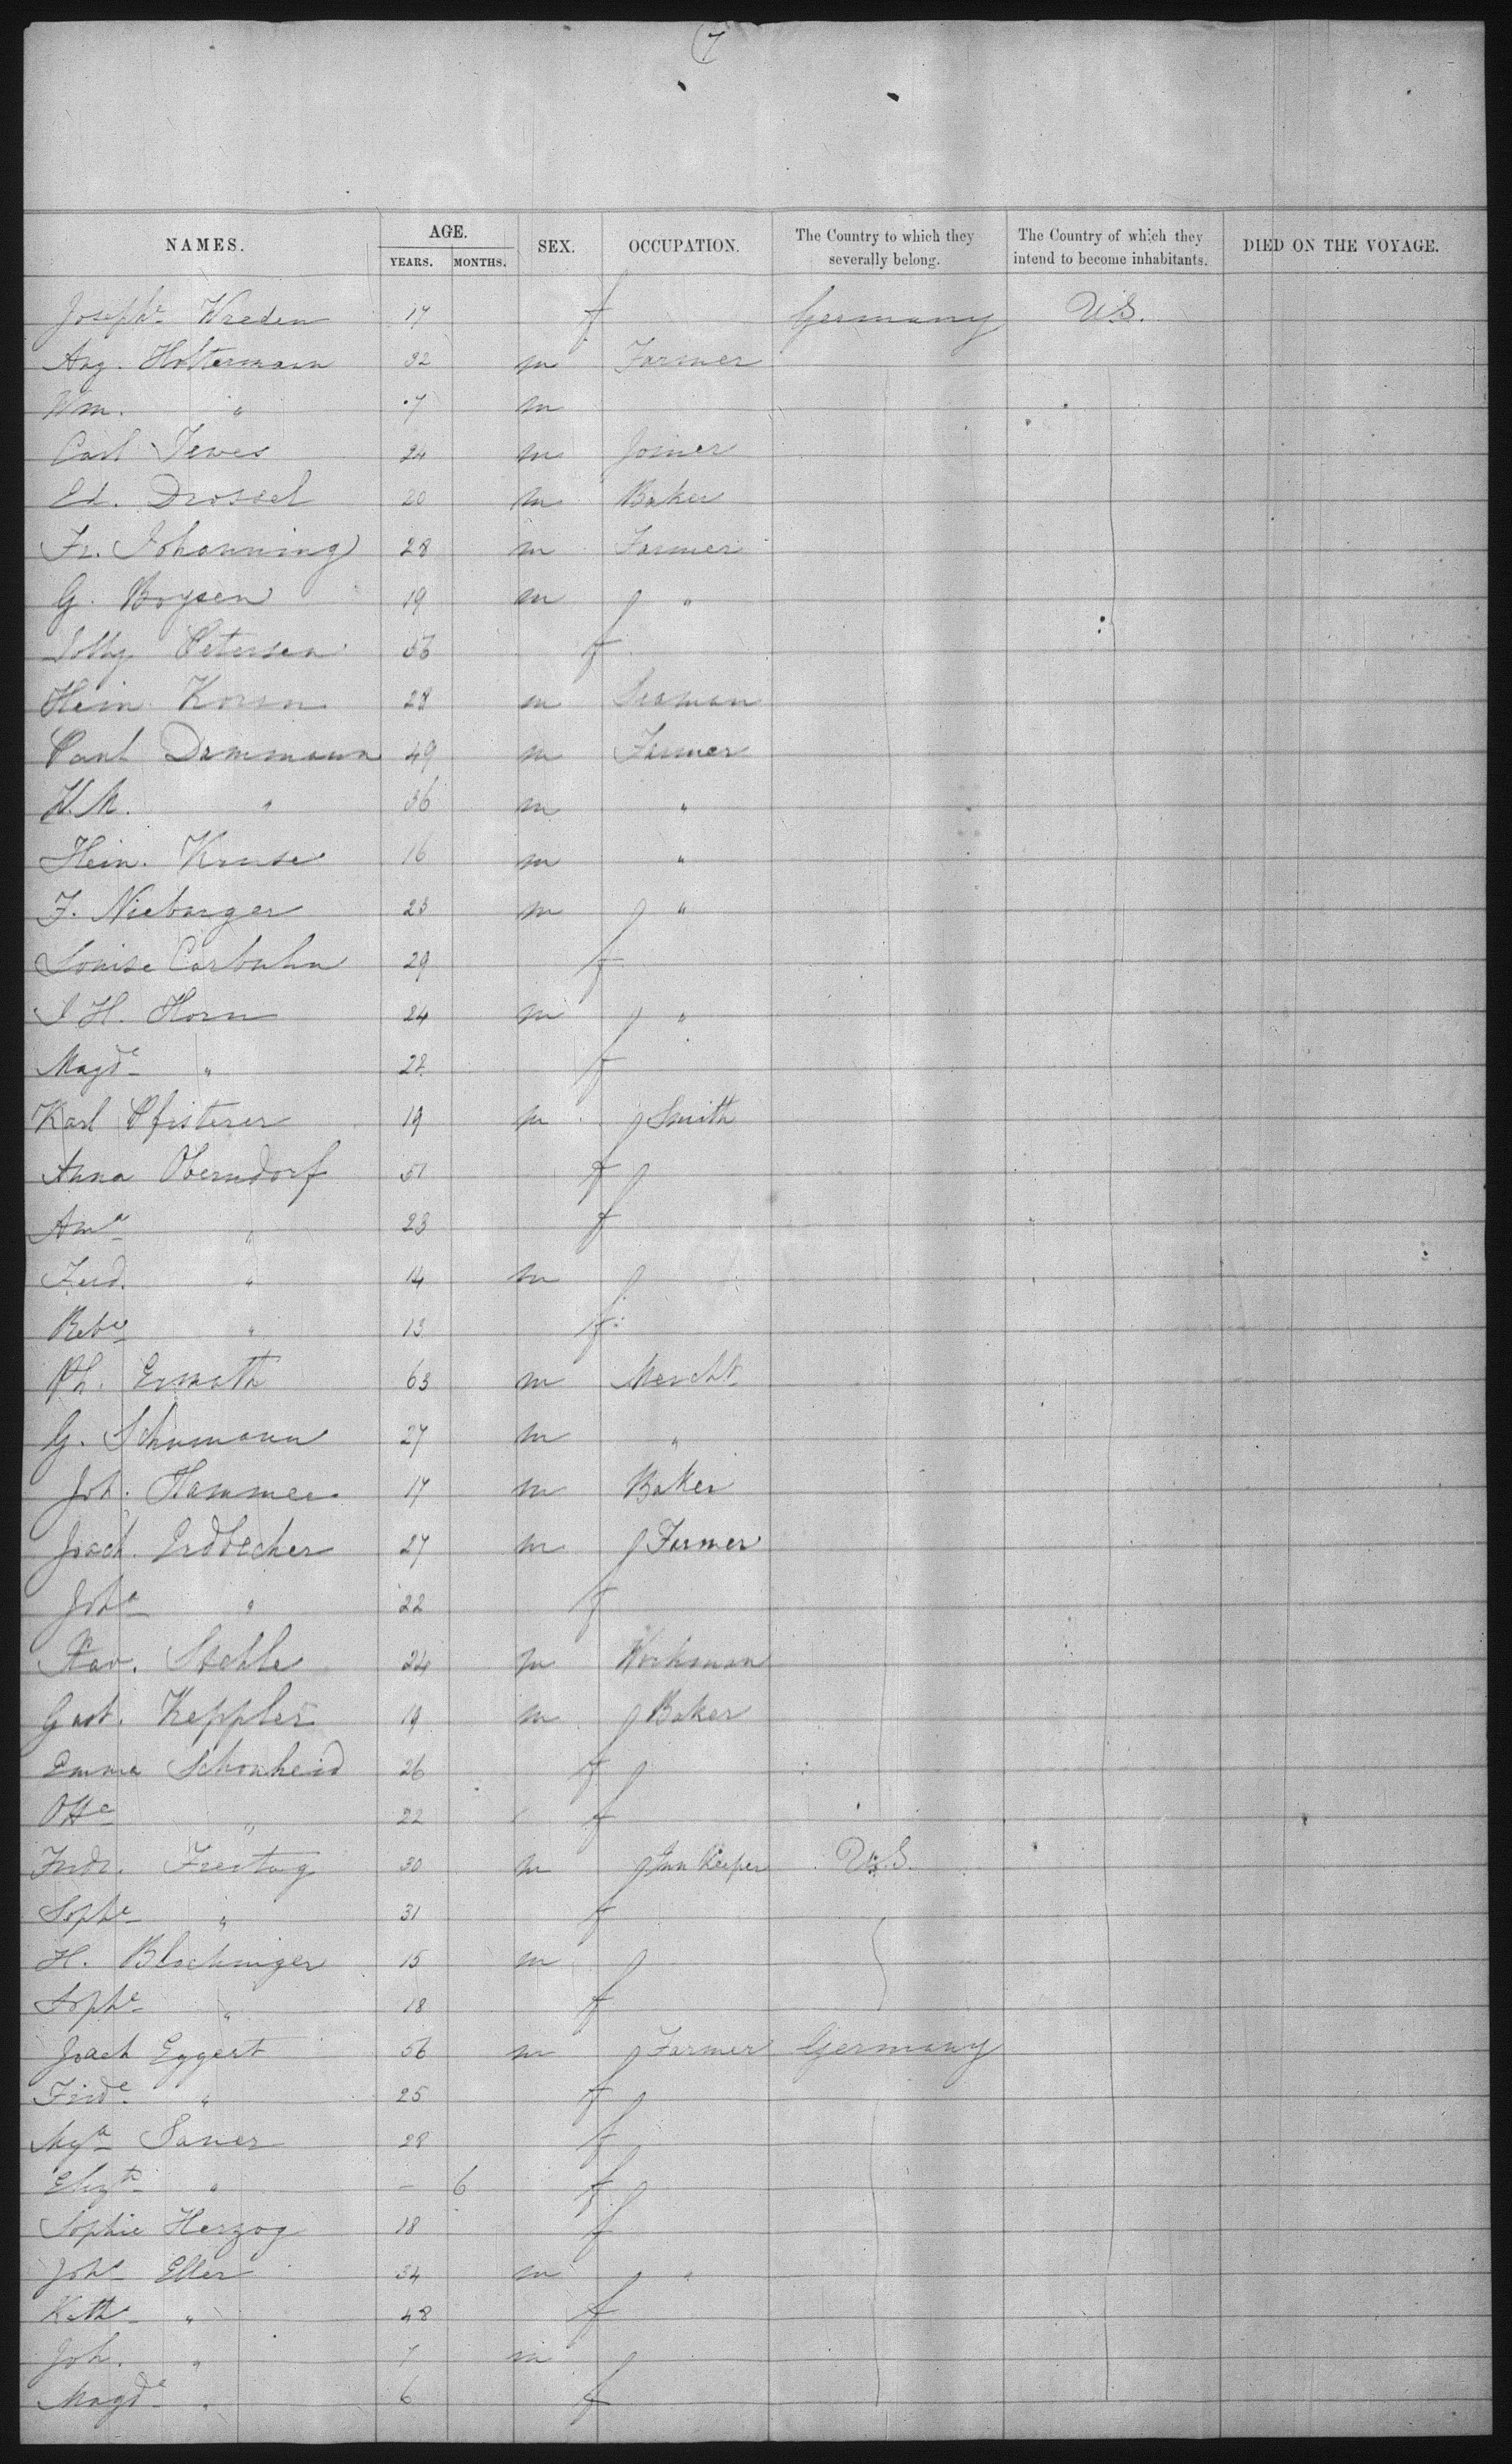 7
NAMES. AGE. SEX. OCCUPATION. The Country to which they severally belong. The Country of which they intend to become inhabitants. DIED ON THE VOYAGE.
YEARS. MONTHS.
Josephe Wreden 17 f Germany U.S.
Aug. Holtermann 32 m Farmer
Wm. " 7 m
Carl Tewes 24 m Joiner
Ed. Drossel 20 m Baker
Fr. Johanning 28 m Farmer
G. Boysen 19 m "
Petersen 56 f
Hein Korn 28 m Seaman
Paul Dammann 49 m Farmer
H.M. " 36 m "
Hein. Kruse 16 m "
F. Nieburger 23 m "
Louise Carbuhn 29 f
J H. Horn 24 m "
Magde " 28 f
Karl Pfisterer 19 m Smith
Anna Oberndorf 51 f
Ama " 23 f
Ferd. " 14 m
Rebe " 13 f
Ph. Ermath 63 m Mercht
G. Schumann 27 m "
Joh. Hammer 17 m Baker
Joach. Erdbecher 27 m Farmer
Joha " 22 f
Xav. Stehle 24 m Workman
Gust. Keppler 19 m Baker
Emma Schonheid 26 f
Otte " 22 f
Fredr. Freitag 30 m Inn Keeper U.S.
Sophe " 31 f
H. Blochinger 15 m
Sophe " 18 f
Joach Eggert 56 m Farmer Germany
Fride " 25 f
Mga Sauer 28 f
Elizth " - 6 f
Sophie Herzog 18 f
Johs Eller 34 m "
Kathe " 48 f
Joh. " 7 m
Magde " 6 f